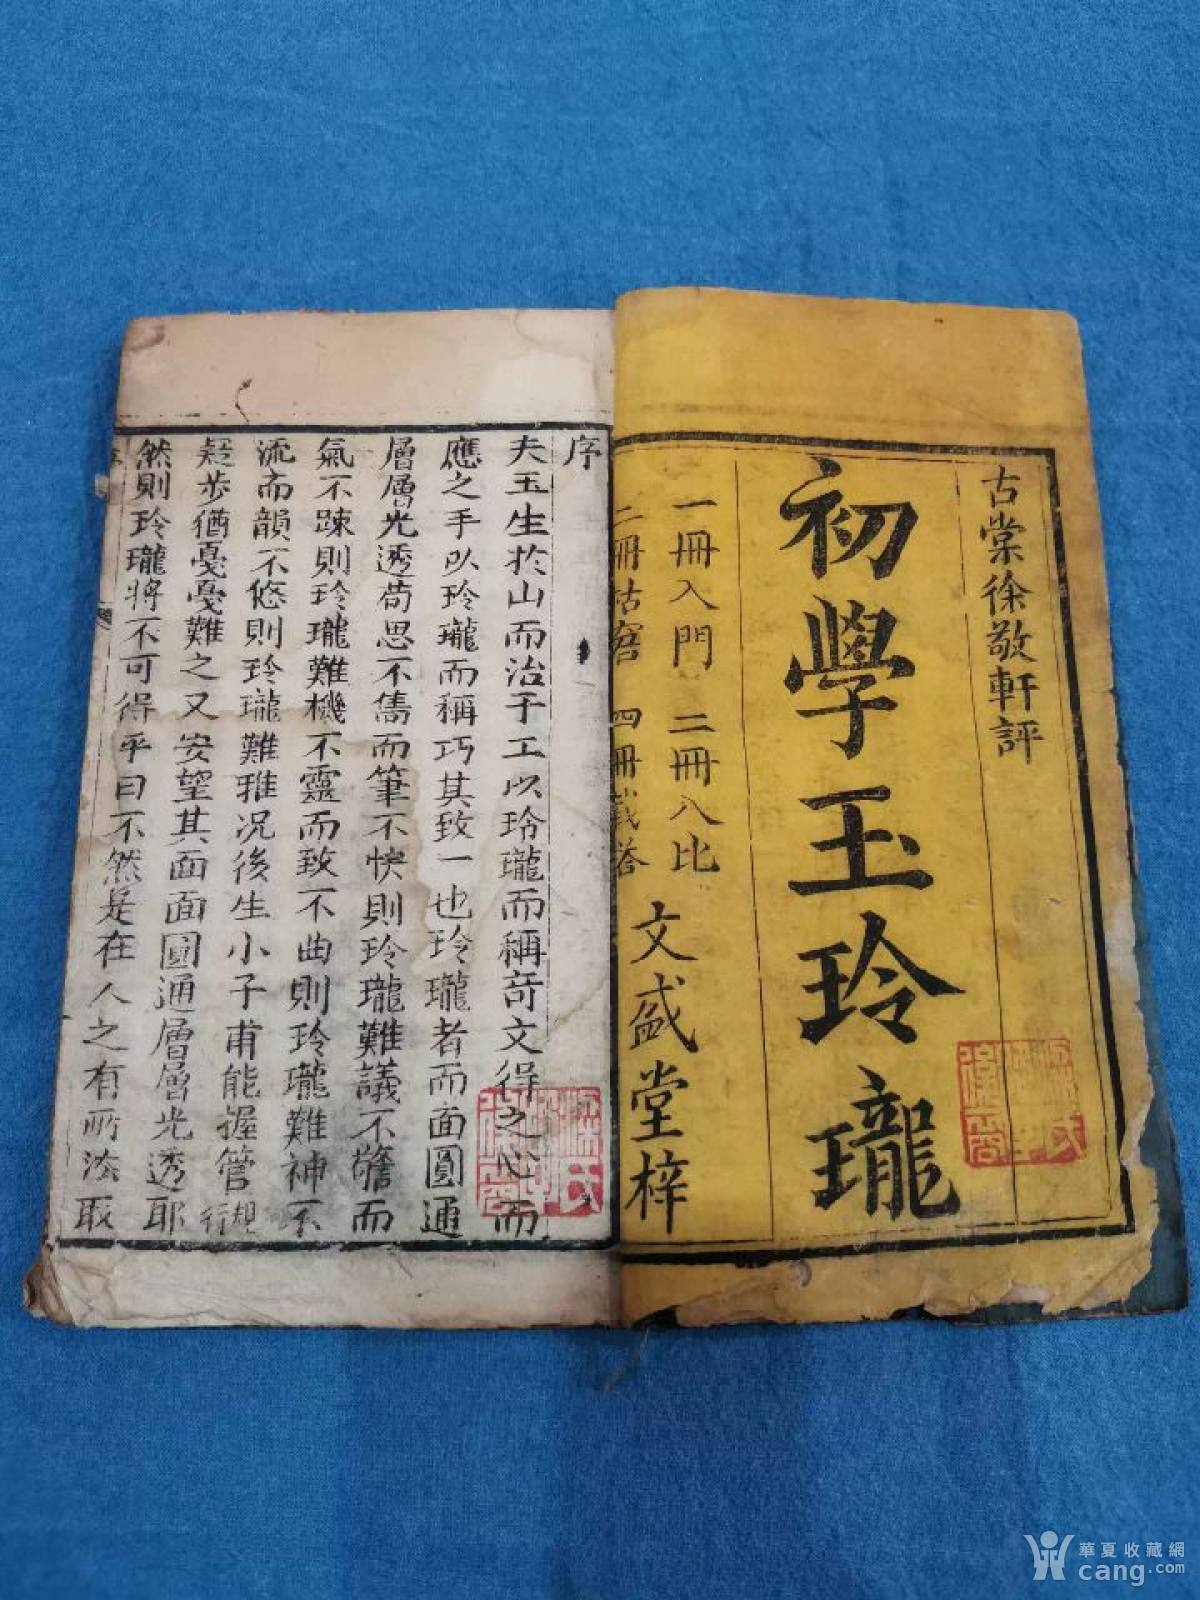 古棠徐敬軒評
初學玉玲瓏
一冊入門 二冊八比
三冊 四冊截搭
文盛堂梓
序
夫玉生於山而治于工以玲瓏而稱奇文得之心而
應之手以玲瓏而稱巧其致一也玲瓏者而面圓通
層層光透苟思不雋而筆不快則玲瓏難議不騰而
氣不踈則玲瓏難機不靈而致不曲則玲瓏難神不
流而韻不悠則玲瓏難雅况後生小子甫能握管規行
疑步猶戛戛難之又安望其面面圓通層層光透耶
然則玲瓏將不可得乎曰不然是在人之有所法取
華夏收藏網
cang.com